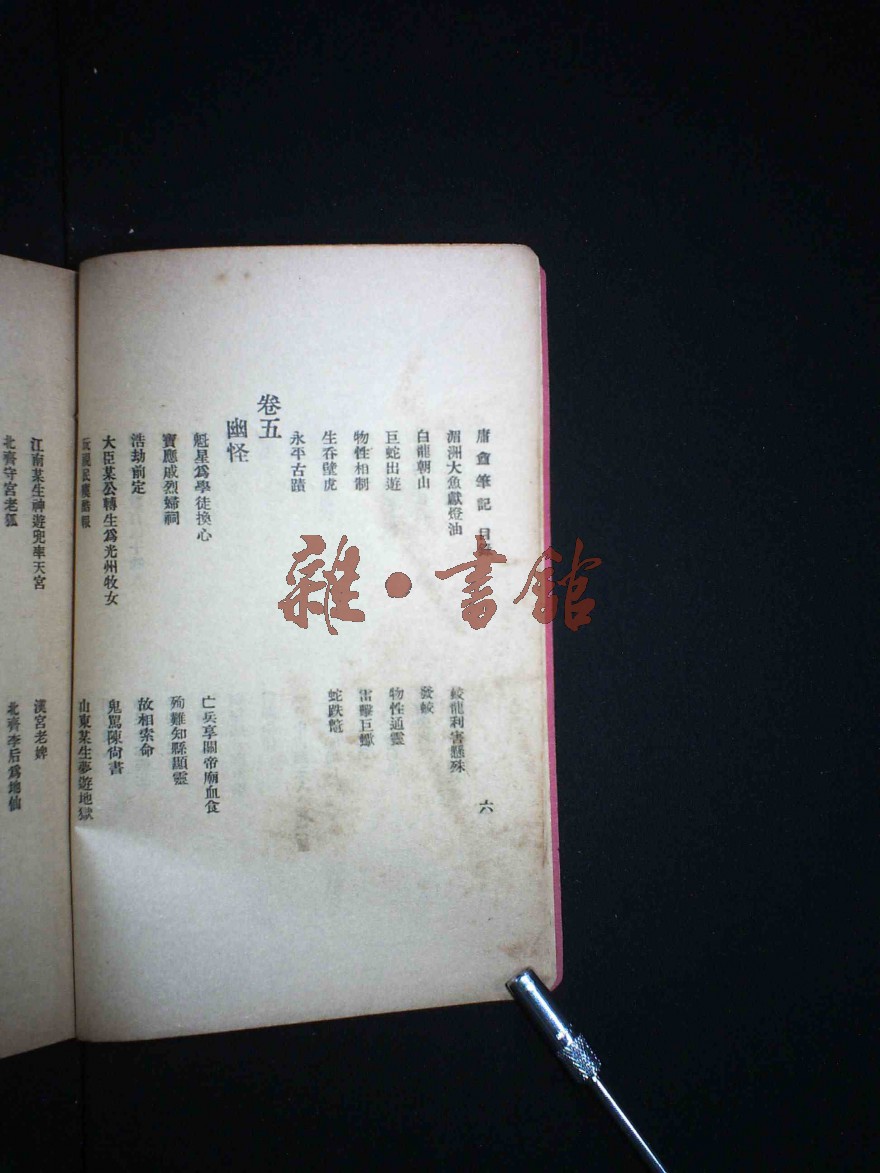 庸盦筆記 目錄 六
湄洲大魚獻燈油 蛟龍利害懸殊
白龍朝山 發蛟
巨蛇出遊 物性通靈
物性相制 雷擊巨蠍
生吞壁虎 蛇跌鼈
永平古蹟
卷五
幽怪
魁星爲學徒換心 亡兵享關帝廟血食
寶應成烈婦祠 殉難知縣顯靈
浩劫前定 故相索命
大臣某公轉生爲光州牧女 鬼罵陳尚書
玩視民瘼酷報 山東某生夢遊地獄
江南某生神遊兜率天宮 漢宮老婢
北齊守宮老狐 北齊李后爲地仙
雜·書館